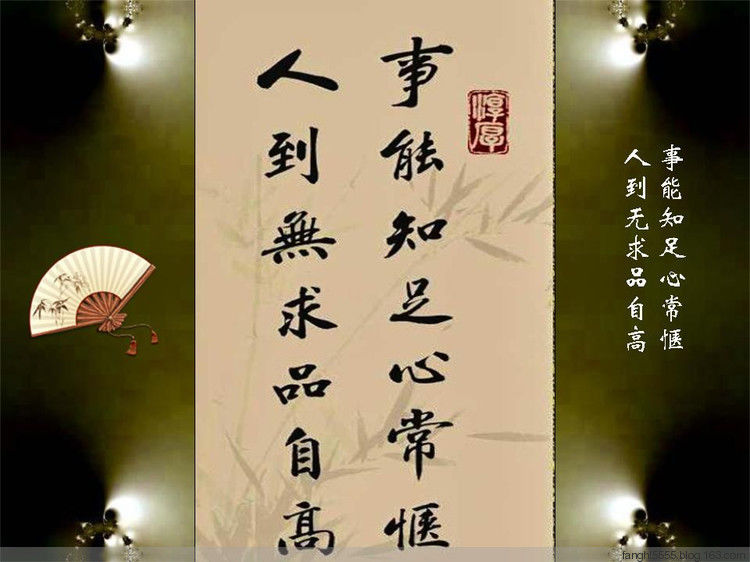 事能知足心常惬
人到無求品自高
淳厚
事能知足心常惬
人到无求品自高
fanghl5555.blog.163.com